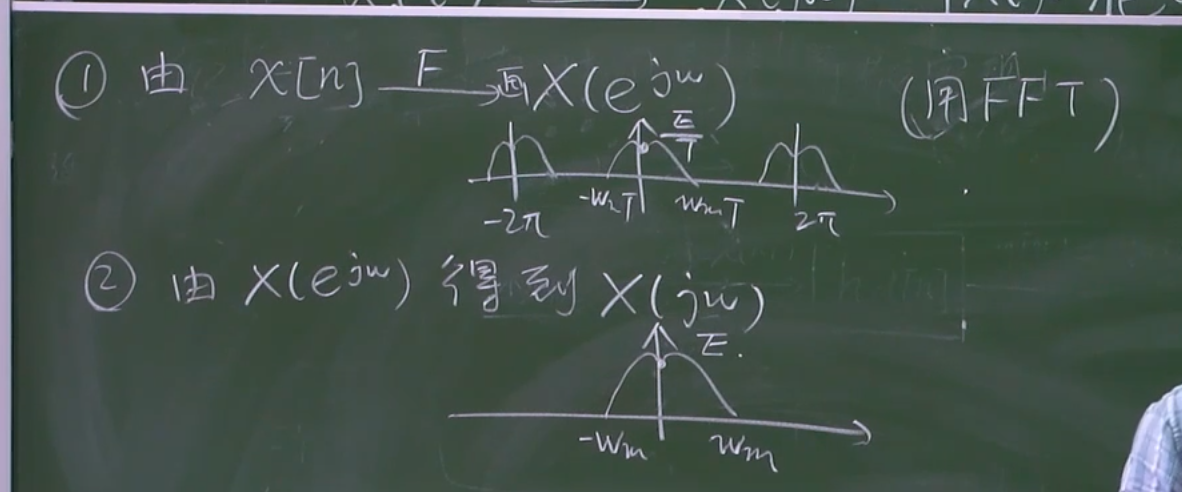 ① 由 X[n] —F→ 画X(e^jw) (用FFT)
E/T
-2π -WmT WmT 2π
② 由 X(e^jw) 得到 X(jw)
E.
-Wm Wm